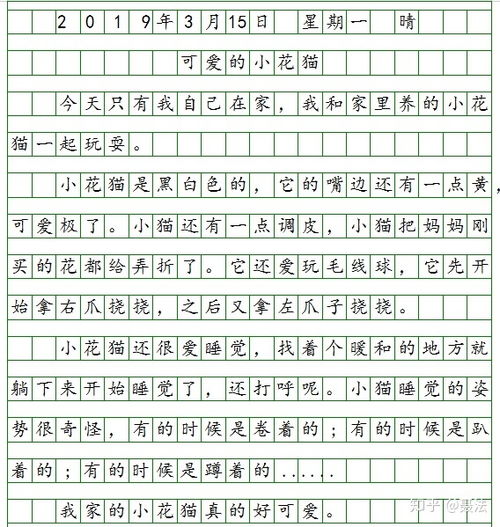 2019年3月15日 星期一 晴
可爱的小花猫
今天只有我自己在家，我和家里养的小花
猫一起玩耍。
小花猫是黑白色的，它的嘴边还有一点黄，
可爱极了。小猫还有一点调皮，小猫把妈妈刚
买的花都给弄折了。它还爱玩毛线球，它先开
始拿右爪挠挠，之后又拿左爪子挠挠。
小花猫还很爱睡觉，找着个暖和的地方就
躺下来开始睡觉了，还打呼呢。小猫睡觉的姿
势很奇怪，有的时候是卷着的；有的时候是趴
着的；有的时候是蹲着的......
我家的小花猫真的好可爱。
知乎 @聂法